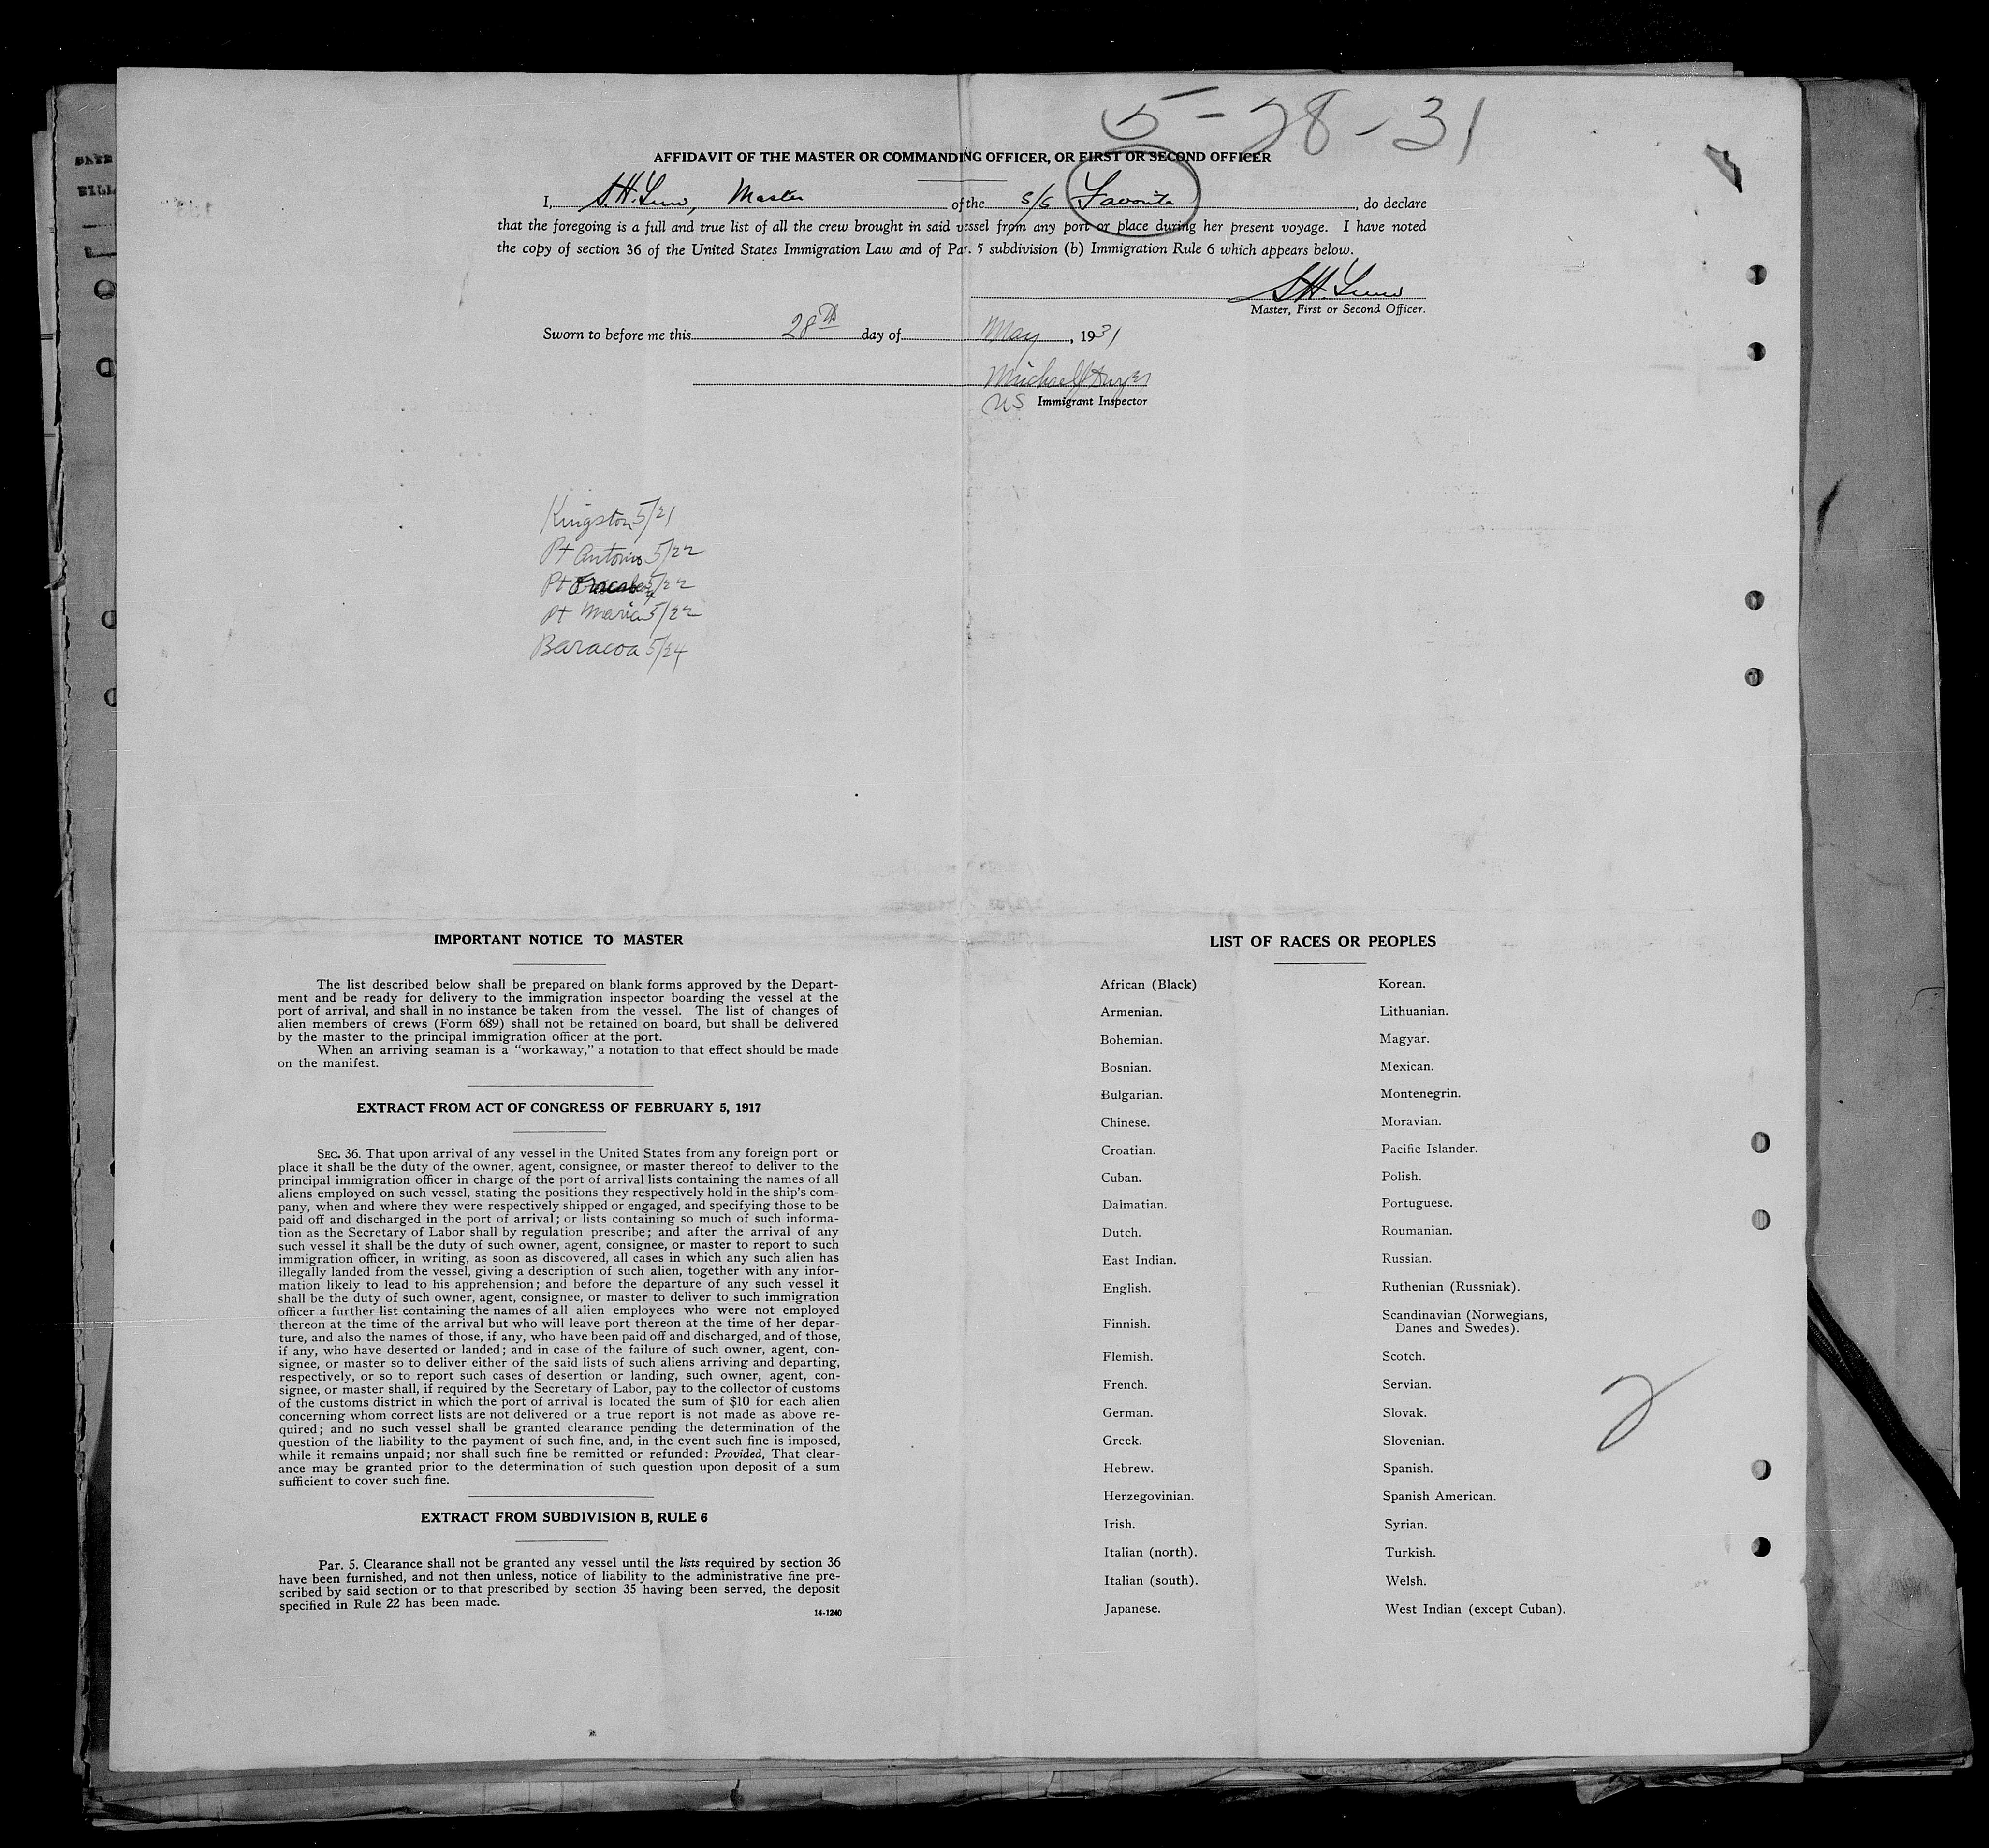 5-28-31
AFFIDAVIT OF THE MASTER OR COMMANDING OFFICER, OR FIRST OR SECOND OFFICER
I, S.H. Master of the S/S Favorita, do declare
that the foregoing is a full and true list of all the crew brought in said vessel from any port or place during her present voyage. I have noted
the copy of section 36 of the United States Immigration Law and of Par. 5 subdivision (b) Immigration Rule 6 which appears below.
S.H.
Master, First or Second Officer.
Sworn to before me this 28th day of May, 1931
Michael J Dwyer
US Immigrant Inspector
Kingston 5/21
Pt Antonio 5/22
Pt 5/22
Pt Maria 5/22
Baracoa 5/24
IMPORTANT NOTICE TO MASTER
The list described below shall be prepared on blank forms approved by the Depart-
ment and be ready for delivery to the immigration inspector boarding the vessel at the
port of arrival, and shall in no instance be taken from the vessel. The list of changes of
alien members of crews (Form 689) shall not be retained on board, but shall be delivered
by the master to the principal immigration officer at the port.
When an arriving seaman is a "workaway," a notation to that effect should be made
on the manifest.
EXTRACT FROM ACT OF CONGRESS OF FEBRUARY 5, 1917
SEC. 36. That upon arrival of any vessel in the United States from any foreign port or
place it shall be the duty of the owner, agent, consignee, or master thereof to deliver to the
principal immigration officer in charge of the port of arrival lists containing the names of all
aliens employed on such vessel, stating the positions they respectively hold in the ship's com-
pany, when and where they were respectively shipped or engaged, and specifying those to be
paid off and discharged in the port of arrival; or lists containing so much of such informa-
tion as the Secretary of Labor shall by regulation prescribe; and after the arrival of any
such vessel it shall be the duty of such owner, agent, consignee, or master to report to such
immigration officer, in writing, as soon as discovered, all cases in which any such alien has
illegally landed from the vessel, giving a description of such alien, together with any infor-
mation likely to lead to his apprehension; and before the departure of any such vessel it
shall be the duty of such owner, agent, consignee, or master to deliver to such immigration
officer a further list containing the names of all alien employees who were not employed
thereon at the time of the arrival but who will leave port thereon at the time of her depar-
ture, and also the names of those, if any, who have been paid off and discharged, and of those,
if any, who have deserted or landed; and in case of the failure of such owner, agent, con-
signee, or master so to deliver either of the said lists of such aliens arriving and departing,
respectively, or so to report such cases of desertion or landing, such owner, agent, con-
signee, or master shall, if required by the Secretary of Labor, pay to the collector of customs
of the customs district in which the port of arrival is located the sum of $10 for each alien
concerning whom correct lists are not delivered or a true report is not made as above re-
quired; and no such vessel shall be granted clearance pending the determination of the
question of the liability to the payment of such fine, and, in the event such fine is imposed,
while it remains unpaid; nor shall such fine be remitted or refunded: Provided, That clear-
ance may be granted prior to the determination of such question upon deposit of a sum
sufficient to cover such fine.
EXTRACT FROM SUBDIVISION B, RULE 6
Par. 5. Clearance shall not be granted any vessel until the lists required by section 36
have been furnished, and not then unless, notice of liability to the administrative fine pre-
scribed by said section or to that prescribed by section 35 having been served, the deposit
specified in Rule 22 has been made.
14-1240
LIST OF RACES OR PEOPLES
African (Black)
Armenian.
Bohemian.
Bosnian.
Bulgarian.
Chinese.
Croatian.
Cuban.
Dalmatian.
Dutch.
East Indian.
English.
Finnish.
Flemish.
French.
German.
Greek.
Hebrew.
Herzegovinian.
Irish.
Italian (north).
Italian (south).
Japanese.
Korean.
Lithuanian.
Magyar.
Mexican.
Montenegrin.
Moravian.
Pacific Islander.
Polish.
Portuguese.
Roumanian.
Russian.
Ruthenian (Russniak).
Scandinavian (Norwegians,
Danes and Swedes).
Scotch.
Servian.
Slovak.
Slovenian.
Spanish.
Spanish American.
Syrian.
Turkish.
Welsh.
West Indian (except Cuban).
2